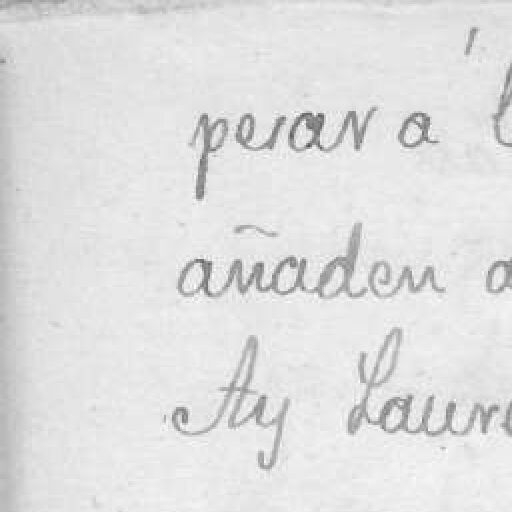 perar á
añaden a
Ay Laur